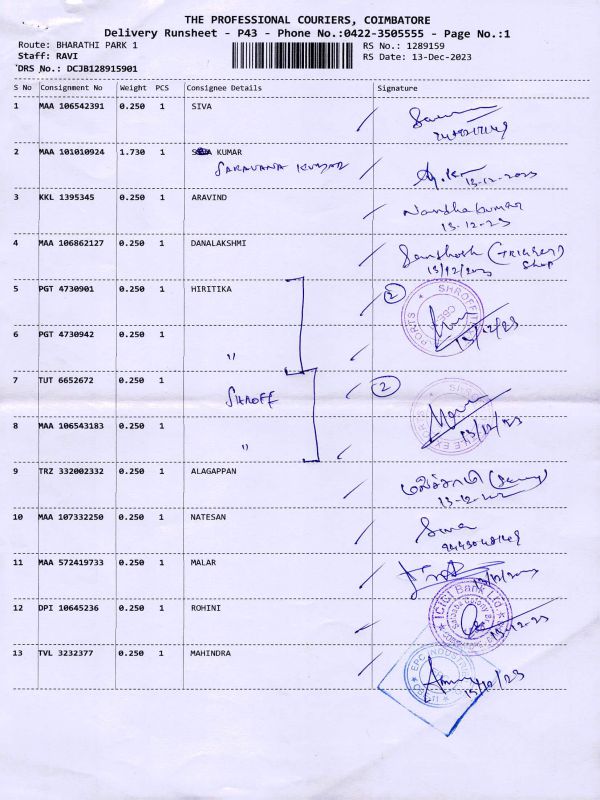 THE PROFESSIONAL COURIERS, COIMBATORE
Delivery Runsheet - P43 - Phone No.:0422-3505555 - Page No.:1
Route: BHARATHI PARK 1 RS No.: 1289159
Staff: RAVI RS Date: 13-Dec-2023
DRS No.: DCJB128915901
S No Consignment No Weight PCS Consignee Details Signature
1 MAA 106542391 0.250 1 SIVA
2 MAA 101010924 1.730 1 KUMAR
SARAVANA KUMAR
13-12-2023
3 KKL 1395345 0.250 1 ARAVIND Nandhakumar
13-12-23
4 MAA 106862127 0.250 1 DANALAKSHMI Santhosh
13/12/2023 Shop
5 PGT 4730901 0.250 1 HIRITIKA 2
6 PGT 4730942 0.250 1 13/12/23
"
7 TUT 6652672 0.250 1 2
SHROFF
8 MAA 106543183 0.250 1 13/12/23
"
9 TRZ 332002332 0.250 1 ALAGAPPAN
10 MAA 107332250 0.250 1 NATESAN Siva
11 MAA 572419733 0.250 1 MALAR
12 DPI 10645236 0.250 1 ROHINI ICICI Bank Ltd.
13-12-23
13 TVL 3232377 0.250 1 MAHINDRA EPC INDUSTRI
13/12/23